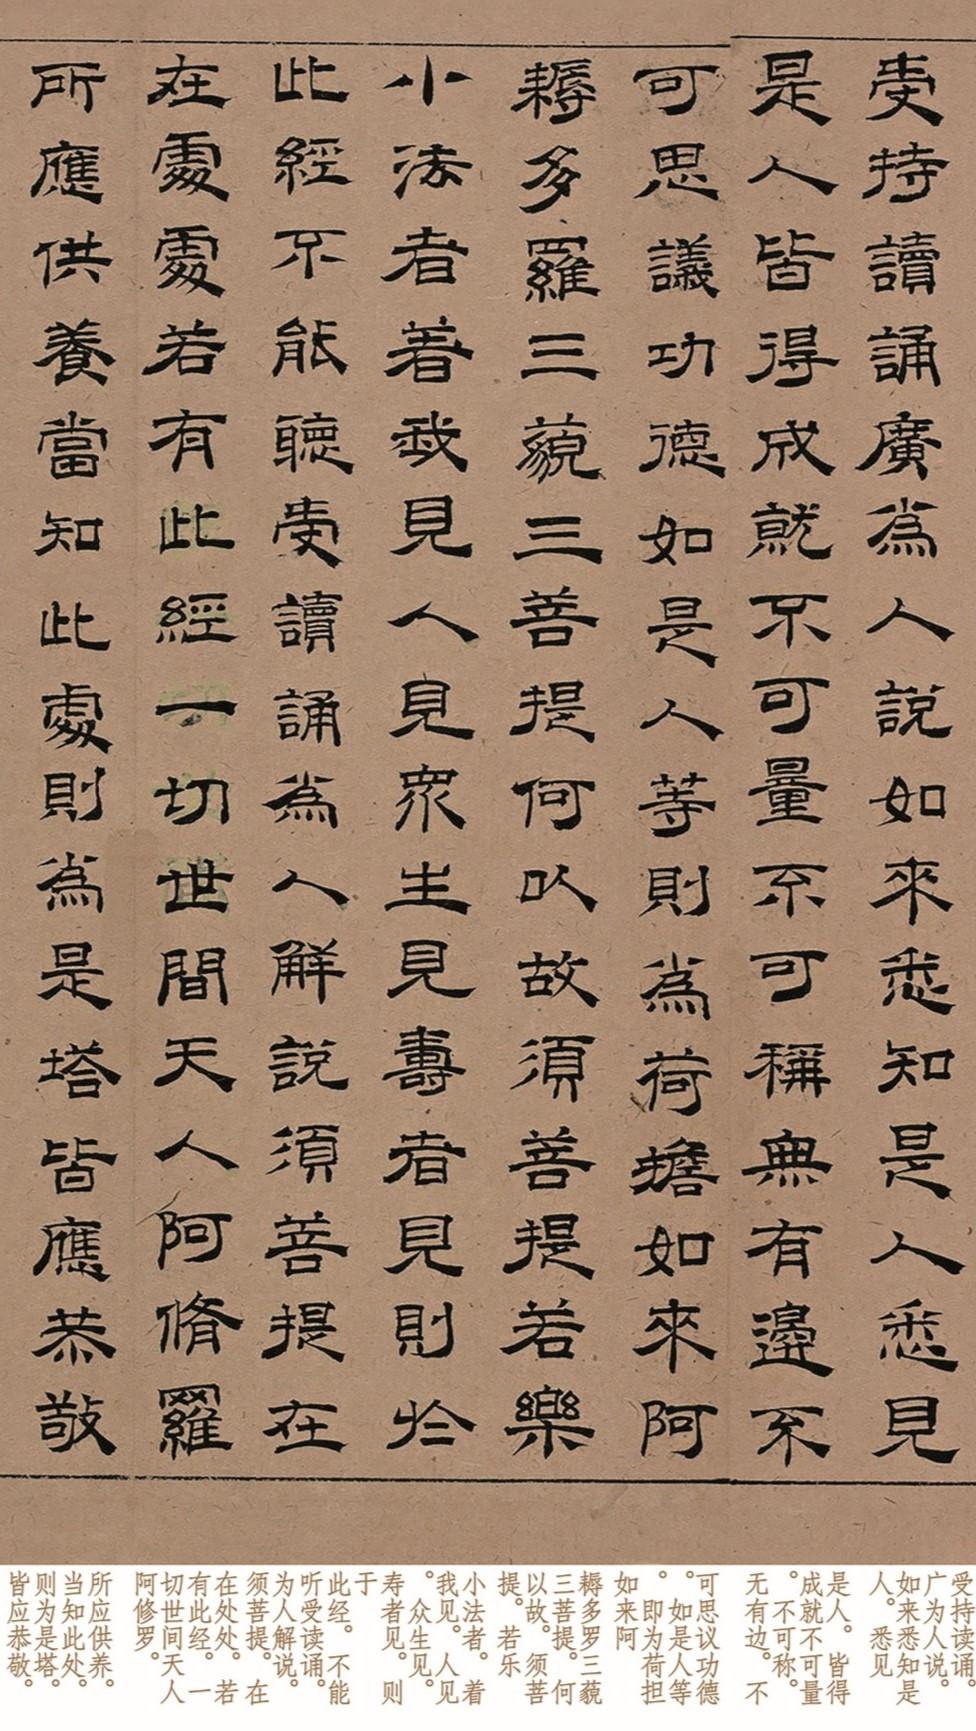 受持讀誦廣為人說如來悉知是人悉見
是人皆得成就不可量不可稱無有邊不
可思議功德如是人等則為荷擔如來阿
耨多羅三藐三菩提何以故須菩提若樂
小法者著我見人見眾生見壽者見則於
此經不能聽受讀誦為人解說須菩提在
在處處若有此經一切世間天人阿脩羅
所應供養當知此處則為是塔皆應恭敬
受持读诵。
广为人说。
如来悉知是
人。悉见
是人。皆得
成就不可量
。不可称。
无有边。不
可思议功德
。如是人等
。即为荷担
如来阿
耨多罗三藐
三菩提。何
以故。须菩
提。若乐
小法者。着
我见。人见
。众生见。
寿者见。则
于
此经。不能
听受读诵。
为人解说。
须菩提。在
在处处。若
有此经。一
切世间天人
阿修罗。
所应供养。
当知此处。
则为是塔。
皆应恭敬。